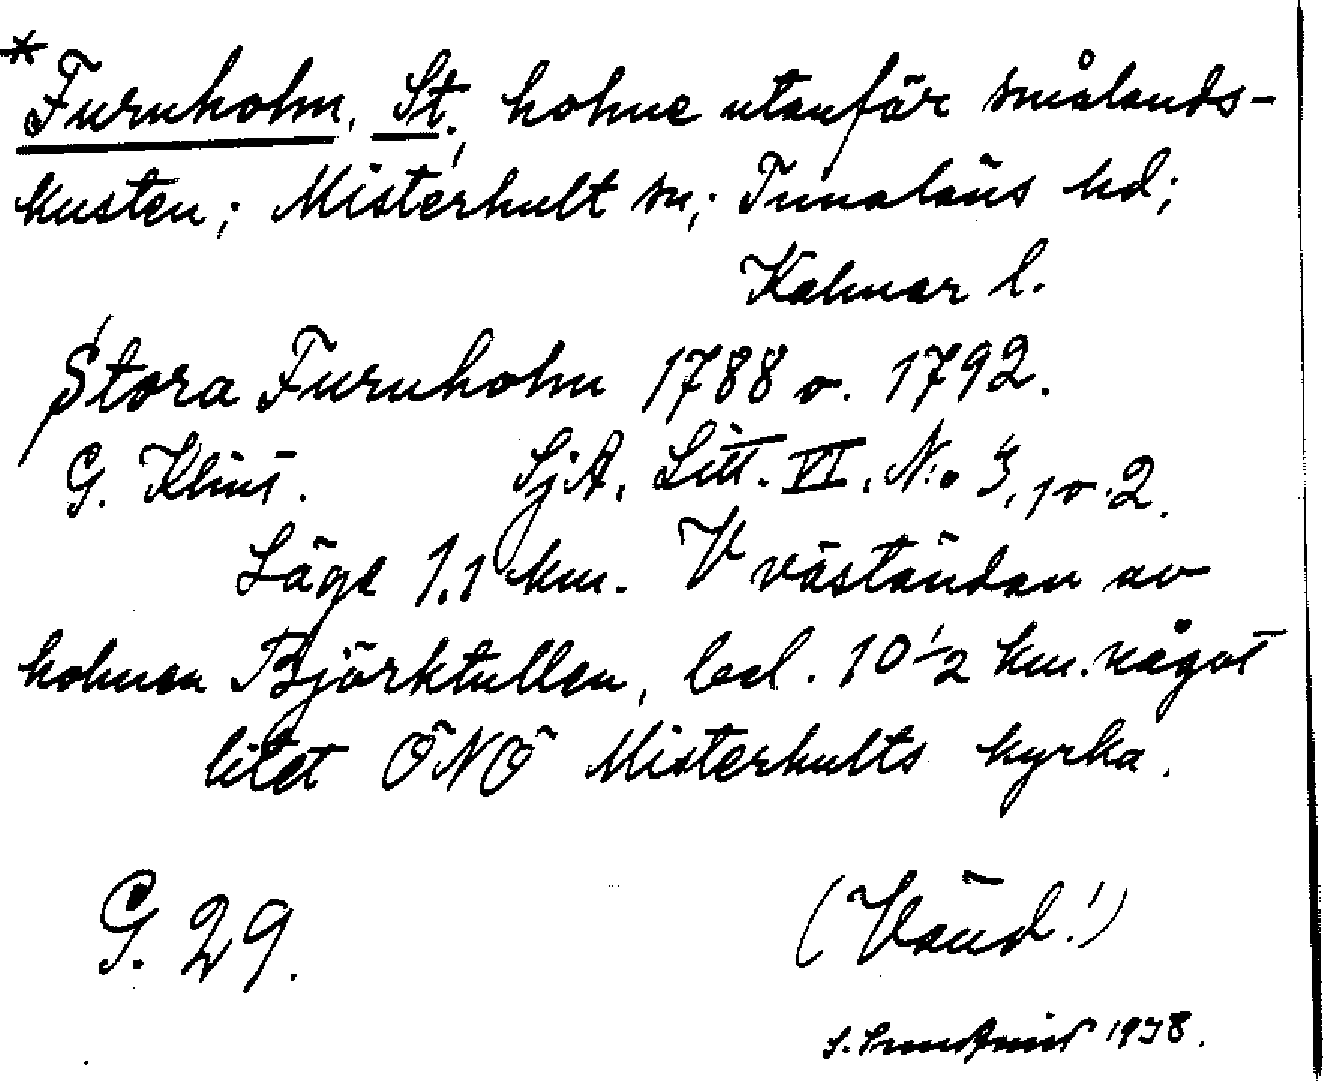 *Furuholm, St., holme utanför smålands-
kusten; Misterhult sn; Tunaläns hd;
Kalmar l.
Stora Furuholm 1788 o. 1792.
G. Klint. SjA. Litt. VI. N:o 3, 1 o. 2.
Läge 1.1 km. V väständan av
holmen Björktullen, bel. 10 1/2 km. något
litet ÖNÖ Misterhults kyrka.
G. 29. (Vänd!)
1938.